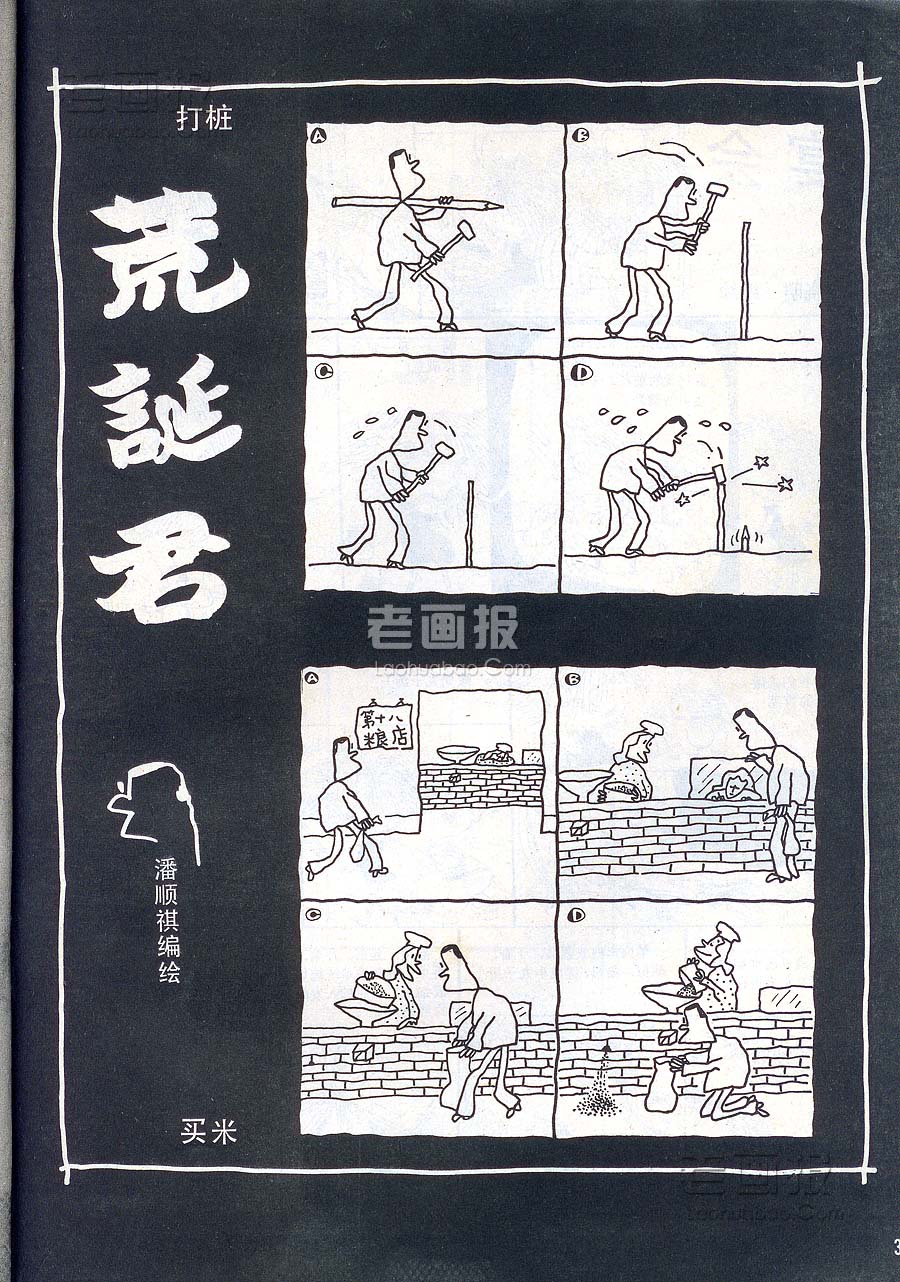 老画报
打桩
荒
誕
君
潘顺祺编绘
买米
A
B
C
D
老画报
Laohuabao.Com
A
第十八
粮店
B
C
D
老画报
Laohuabao.Com
3